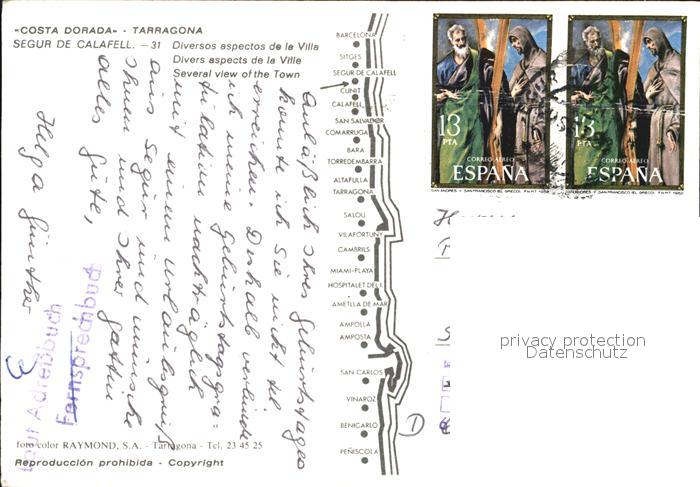 «COSTA DORADA» - TARRAGONA
SEGUR DE CALAFELL. — 31 Diversos aspectos de la Villa
Divers aspects de la Ville
Several view of the Town
Anläßlich Ihres Geburtstages
konnte ich Sie nicht tel.
erreichen. Deshalb verbinde
ich meine Geburtstagsgra=
tulation nachträglich
mit einem Urlaubsgruß
aus Segur und wünsche
Ihnen und Ihrer Gattin
alles Gute,
Helga Günther
Laut Adreßbuch
Fernsprechbuch
foto color RAYMOND, S.A. - Tarragona - Tel. 23 45 25
Reproducción prohibida - Copyright
BARCELONA
SITGES
SEGUR DE CALAFELL
CUNIT
CALAFELL
SAN SALVADOR
COMARRUGA
BARA
TORREDEMBARRA
ALTAFULLA
TARRAGONA
SALOU
VILAFORTUNY
CAMBRILS
MIAMI-PLAYA
HOSPITALET DEL I.
AMETLLA DE MAR
AMPOLLA
AMPOSTA
SAN CARLOS
VINAROZ
BENICARLO
PEÑISCOLA
13 PTA
CORREO AEREO
ESPAÑA
SAN ANDRES Y SAN FRANCISCO (EL GRECO). F.N.M.T. 1982
13 PTA
CORREO AEREO
ESPAÑA
SAN ANDRES Y SAN FRANCISCO (EL GRECO). F.N.M.T. 1982
D
privacy protection
Datenschutz